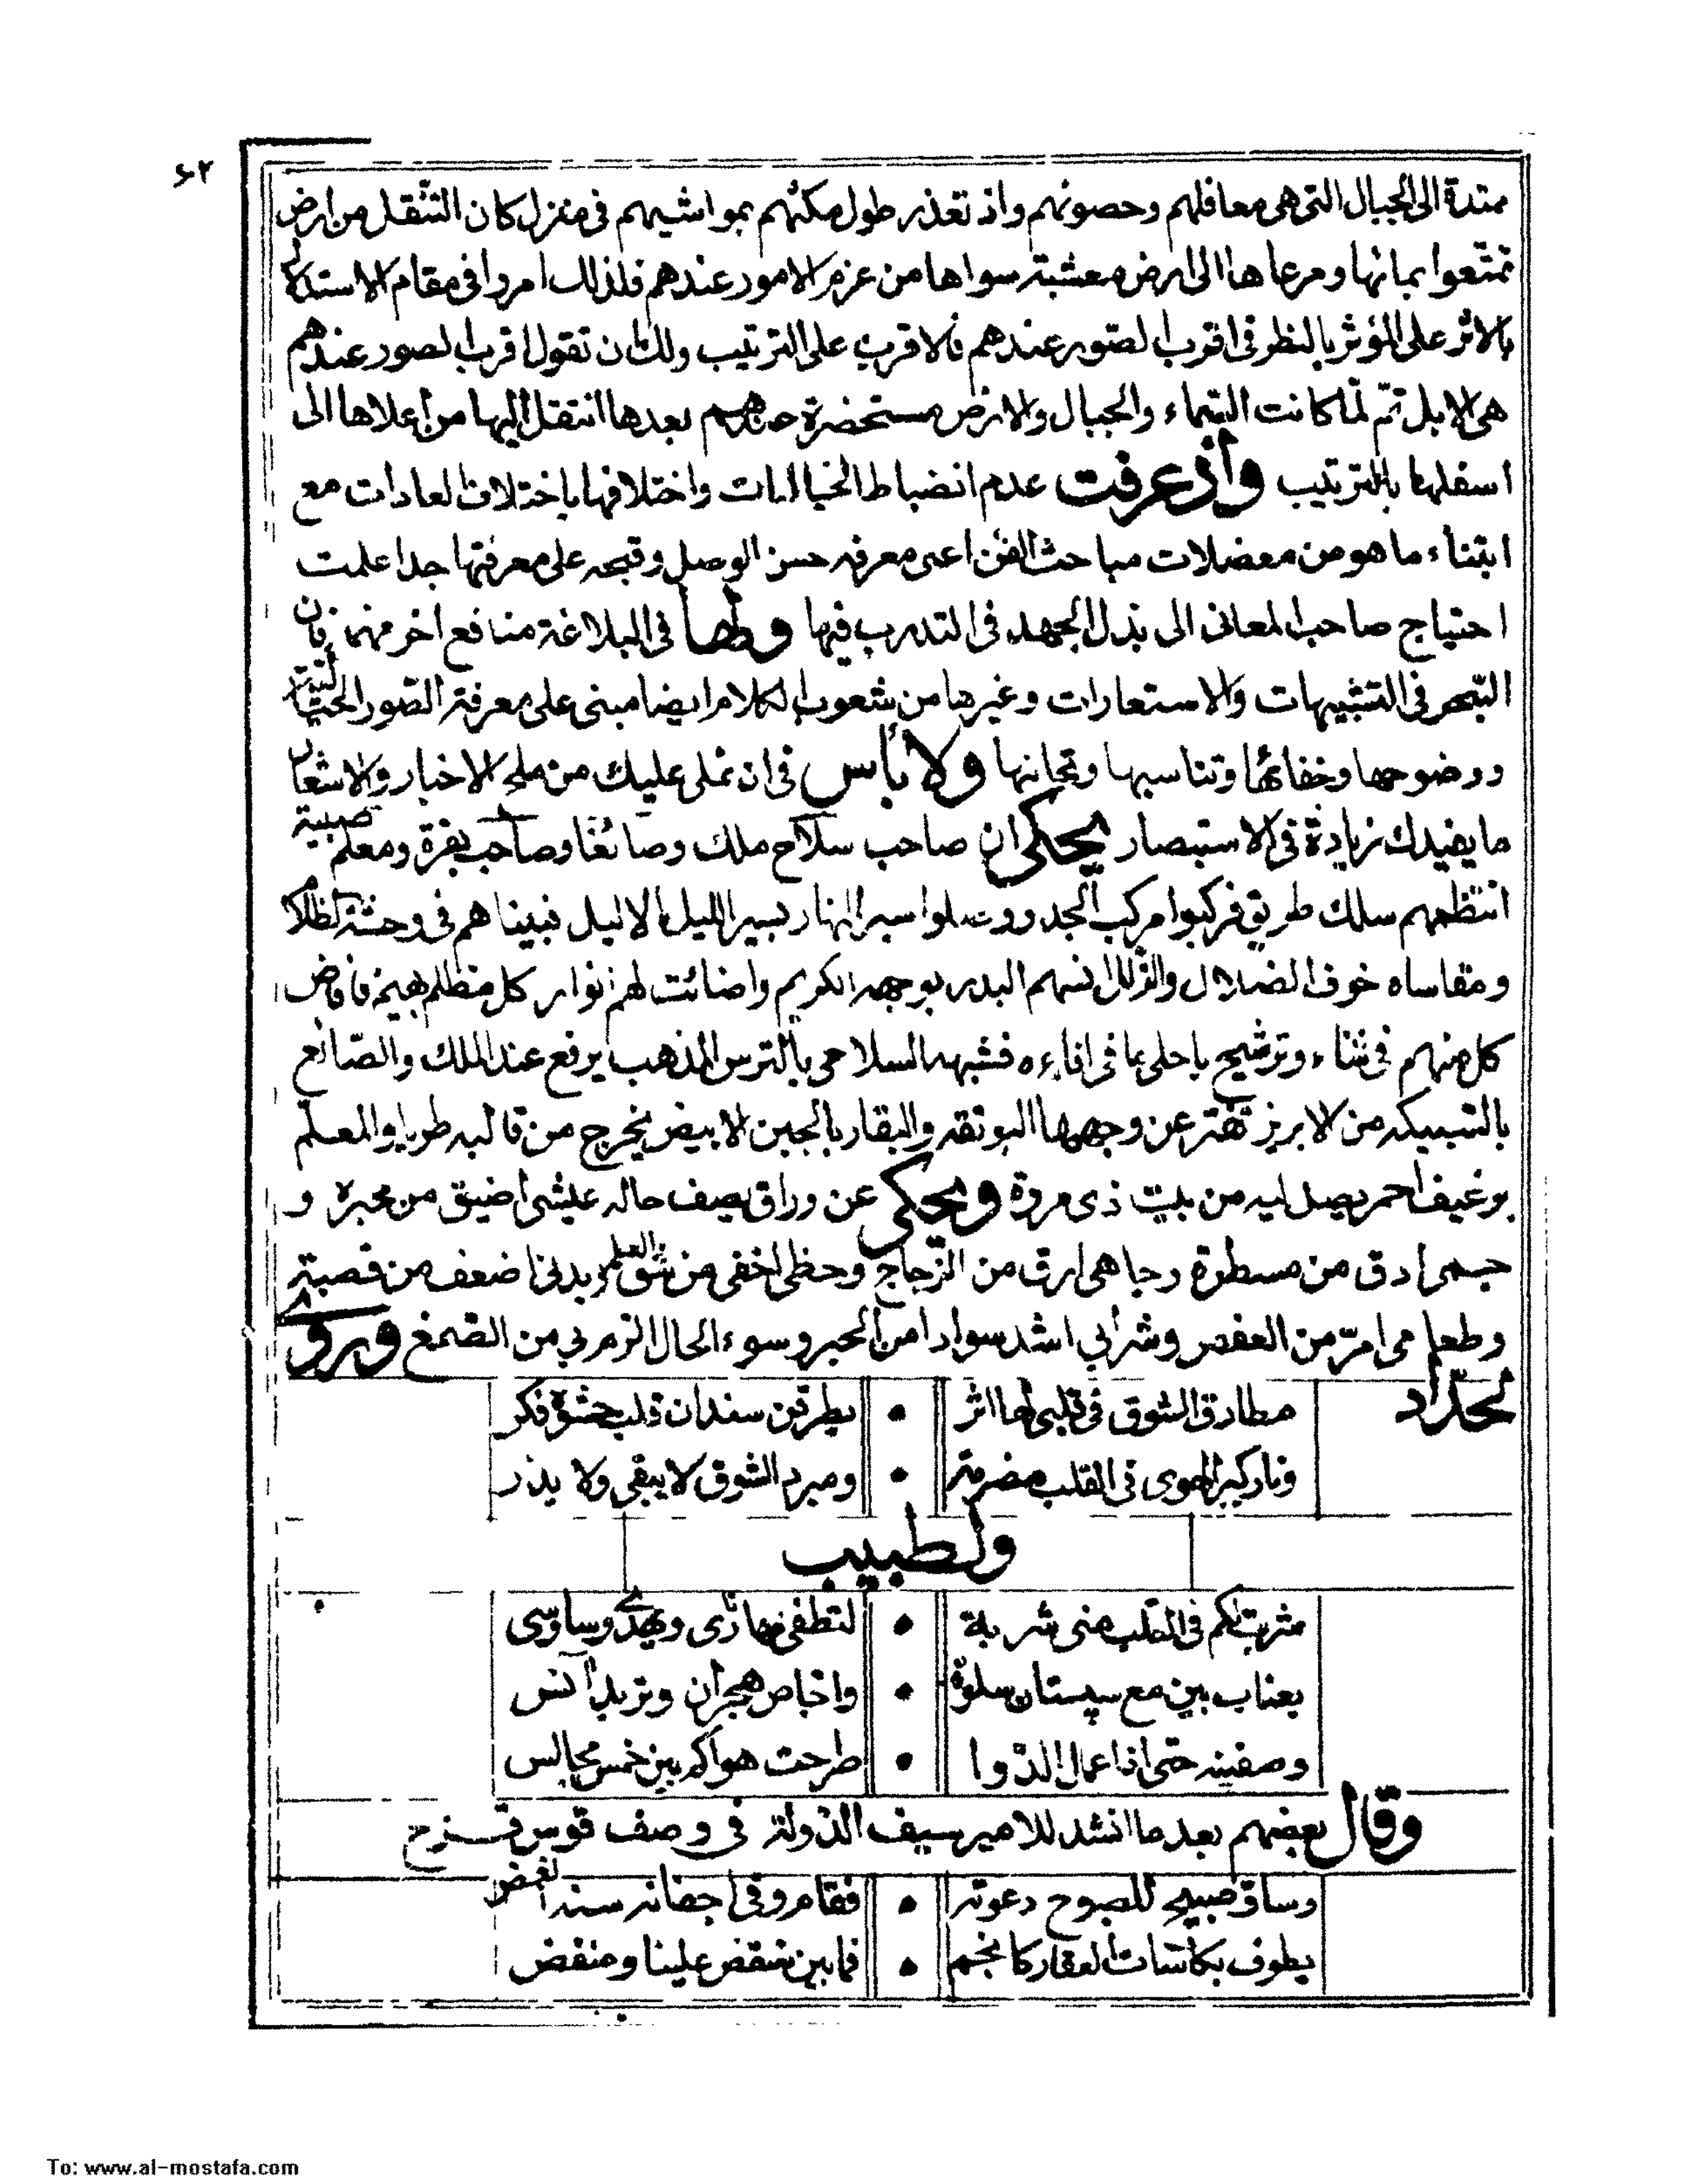 ٦٢
ممتدة الى الجبال التى هى معاقلهم وحصونهم واذ تعذر طول مكثهم بمواشيهم فى منزل كان التنقل من ارض
تمتعوا بمائها ومرعاها الى ارض معشبة سواها من عزم الامور عندهم فلذلك امروا فى مقام الاستدلال
بالاثر على المؤثر بالنظر فى اقرب الصور عندهم فالاقرب على الترتيب ولك ان تقول اقرب الصور عندهم
هى الابل ثم لما كانت السماء والجبال والارض مستحضرة عندهم بعدها انتقل اليها من اعلاها الى
اسفلها بالترتيب واذ عرفت عدم انضباط الخياليات واختلافها باختلاف العادات مع
ابتناء ما هو من معضلات مباحث الفن اعنى معرفه حسن الوصل وقبحه على معرفتها جدا علمت
احتياج صاحب المعانى الى بذل الجهد فى التدرب فيها ولها فى البلاغة منافع اخر مهمة فان
التبحر فى التشبيهات والاستعارات وغيرها من شعوب الكلام ايضا مبنى على معرفة الصور الخيالية
ووضوحها وخفائها وتناسبها وتجانبها ولا بأس فى ان نملى عليك من ملح الاخبار والاشعار
ما يفيدك زيادة فى الاستبصار يحكى ان صاحب سلاح ملك وصائغا وصاحب بقرة ومعلم صبية
انتظمهم سلك طريق فركبوا مركب الجد ووصلوا سير النهار بسير الليل الاليل فبينا هم فى وحشة الظلام
ومقاساه خوف الضلال والزلل انسهم البدر بوجهه الكريم واضائت لهم انوار كل مظلم بهيم فافاض
كل منهم فى ثناء وترشيح باحلى ما فى اناءه فشبهه السلاحى بالترس المذهب يرفع عند الملك والصائغ
بالسبيكه من الابريز تفتر عن وجهها البوتقه والبقار بالجبن الابيض يخرج من قالبه طريا والمعلم
برغيف احمر يصل اليه من بيت ذى مروة ويحكى عن وراق يصف حاله عيشى اضيق من محبرة و
جسمى ادق من مسطرة وجاهى ارق من الزجاج وحظى اخفى من شق القلم وبدنى اضعف من قصبة
وطعامى امرّ من العفص وشرابى اشد سوادا من الحبر وسوء الحال الزم بى من الصمغ وروى
لحدّاد
مطارق الشوق فى قلبى لها اثر • يطرقن سندان قلب حشوه فكر
ونار كير الهوى فى القلب مضرمة • ومبرد الشوق لا يبقى ولا يذر
ولطبيب
شربت لكم فى القلب منى شربة • لتطفى بها نارى ويهدى وساوسى
بعناب بين مع سپستان سلوة • واجاص هجران وتربد آنس
وصفيته حتى اذا عمل الدوا • طرحت هواكم بين خمس مجالس
وقال بعضهم بعد ما انشد للامير سيف الدولة فى وصف قوس قزح
وساق صبيح للصبوح دعوته • فقام وفى اجفانه سنة الغمض
يطوف بكاسات العقار كانجم • فما بين منقض علينا ومنفض
To: www.al-mostafa.com